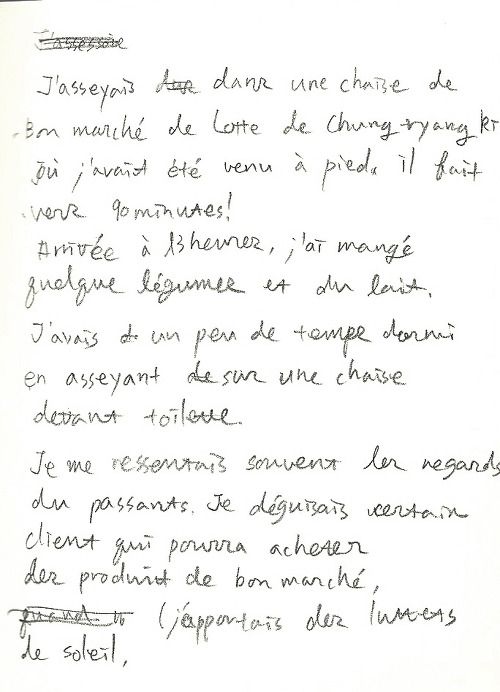 J'asseyais danz une chaise de
Bon marché de Lotte de Chung-ryang ki
où j'avait été venu à pied. il fait
verz 90 minutes!
Arrivée à 13 heurez, j'ai mangé
quelque légumee et du lait.
J'avais un peu de tempe dormi
en asseyant sur une chaise
devant toileue.
Je me ressentais souvent lez regards
du passants. Je déguisais certain
client qui pourra acheter
dez produit de bon marché,
(j'apportais dez lunettes
de soleil,